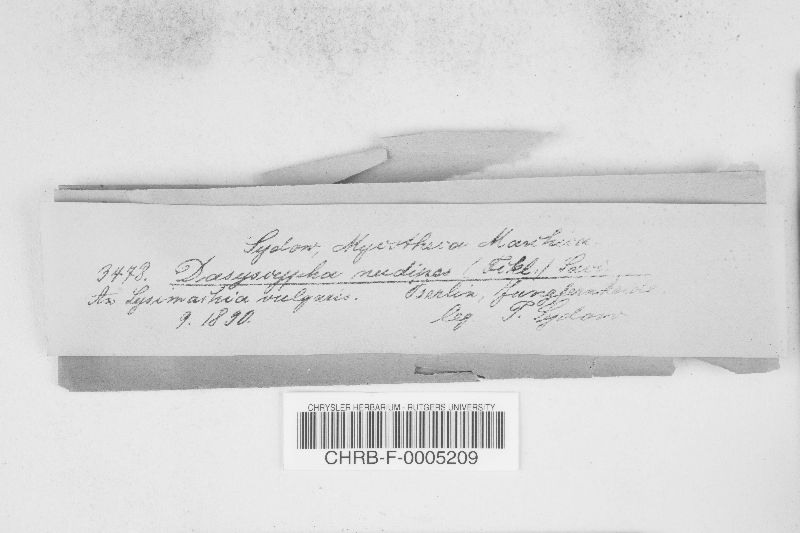 Sydow, Mycotheca Marchica
3473. Dasyscypha nudipes (Fckl.) Sacc.
An Lysimachia vulgaris. Berlin, Jungfernheide
9. 1890. leg P. Sydow
CHRYSLER HERBARIUM - RUTGERS UNIVERSITY
CHRB-F-0005209